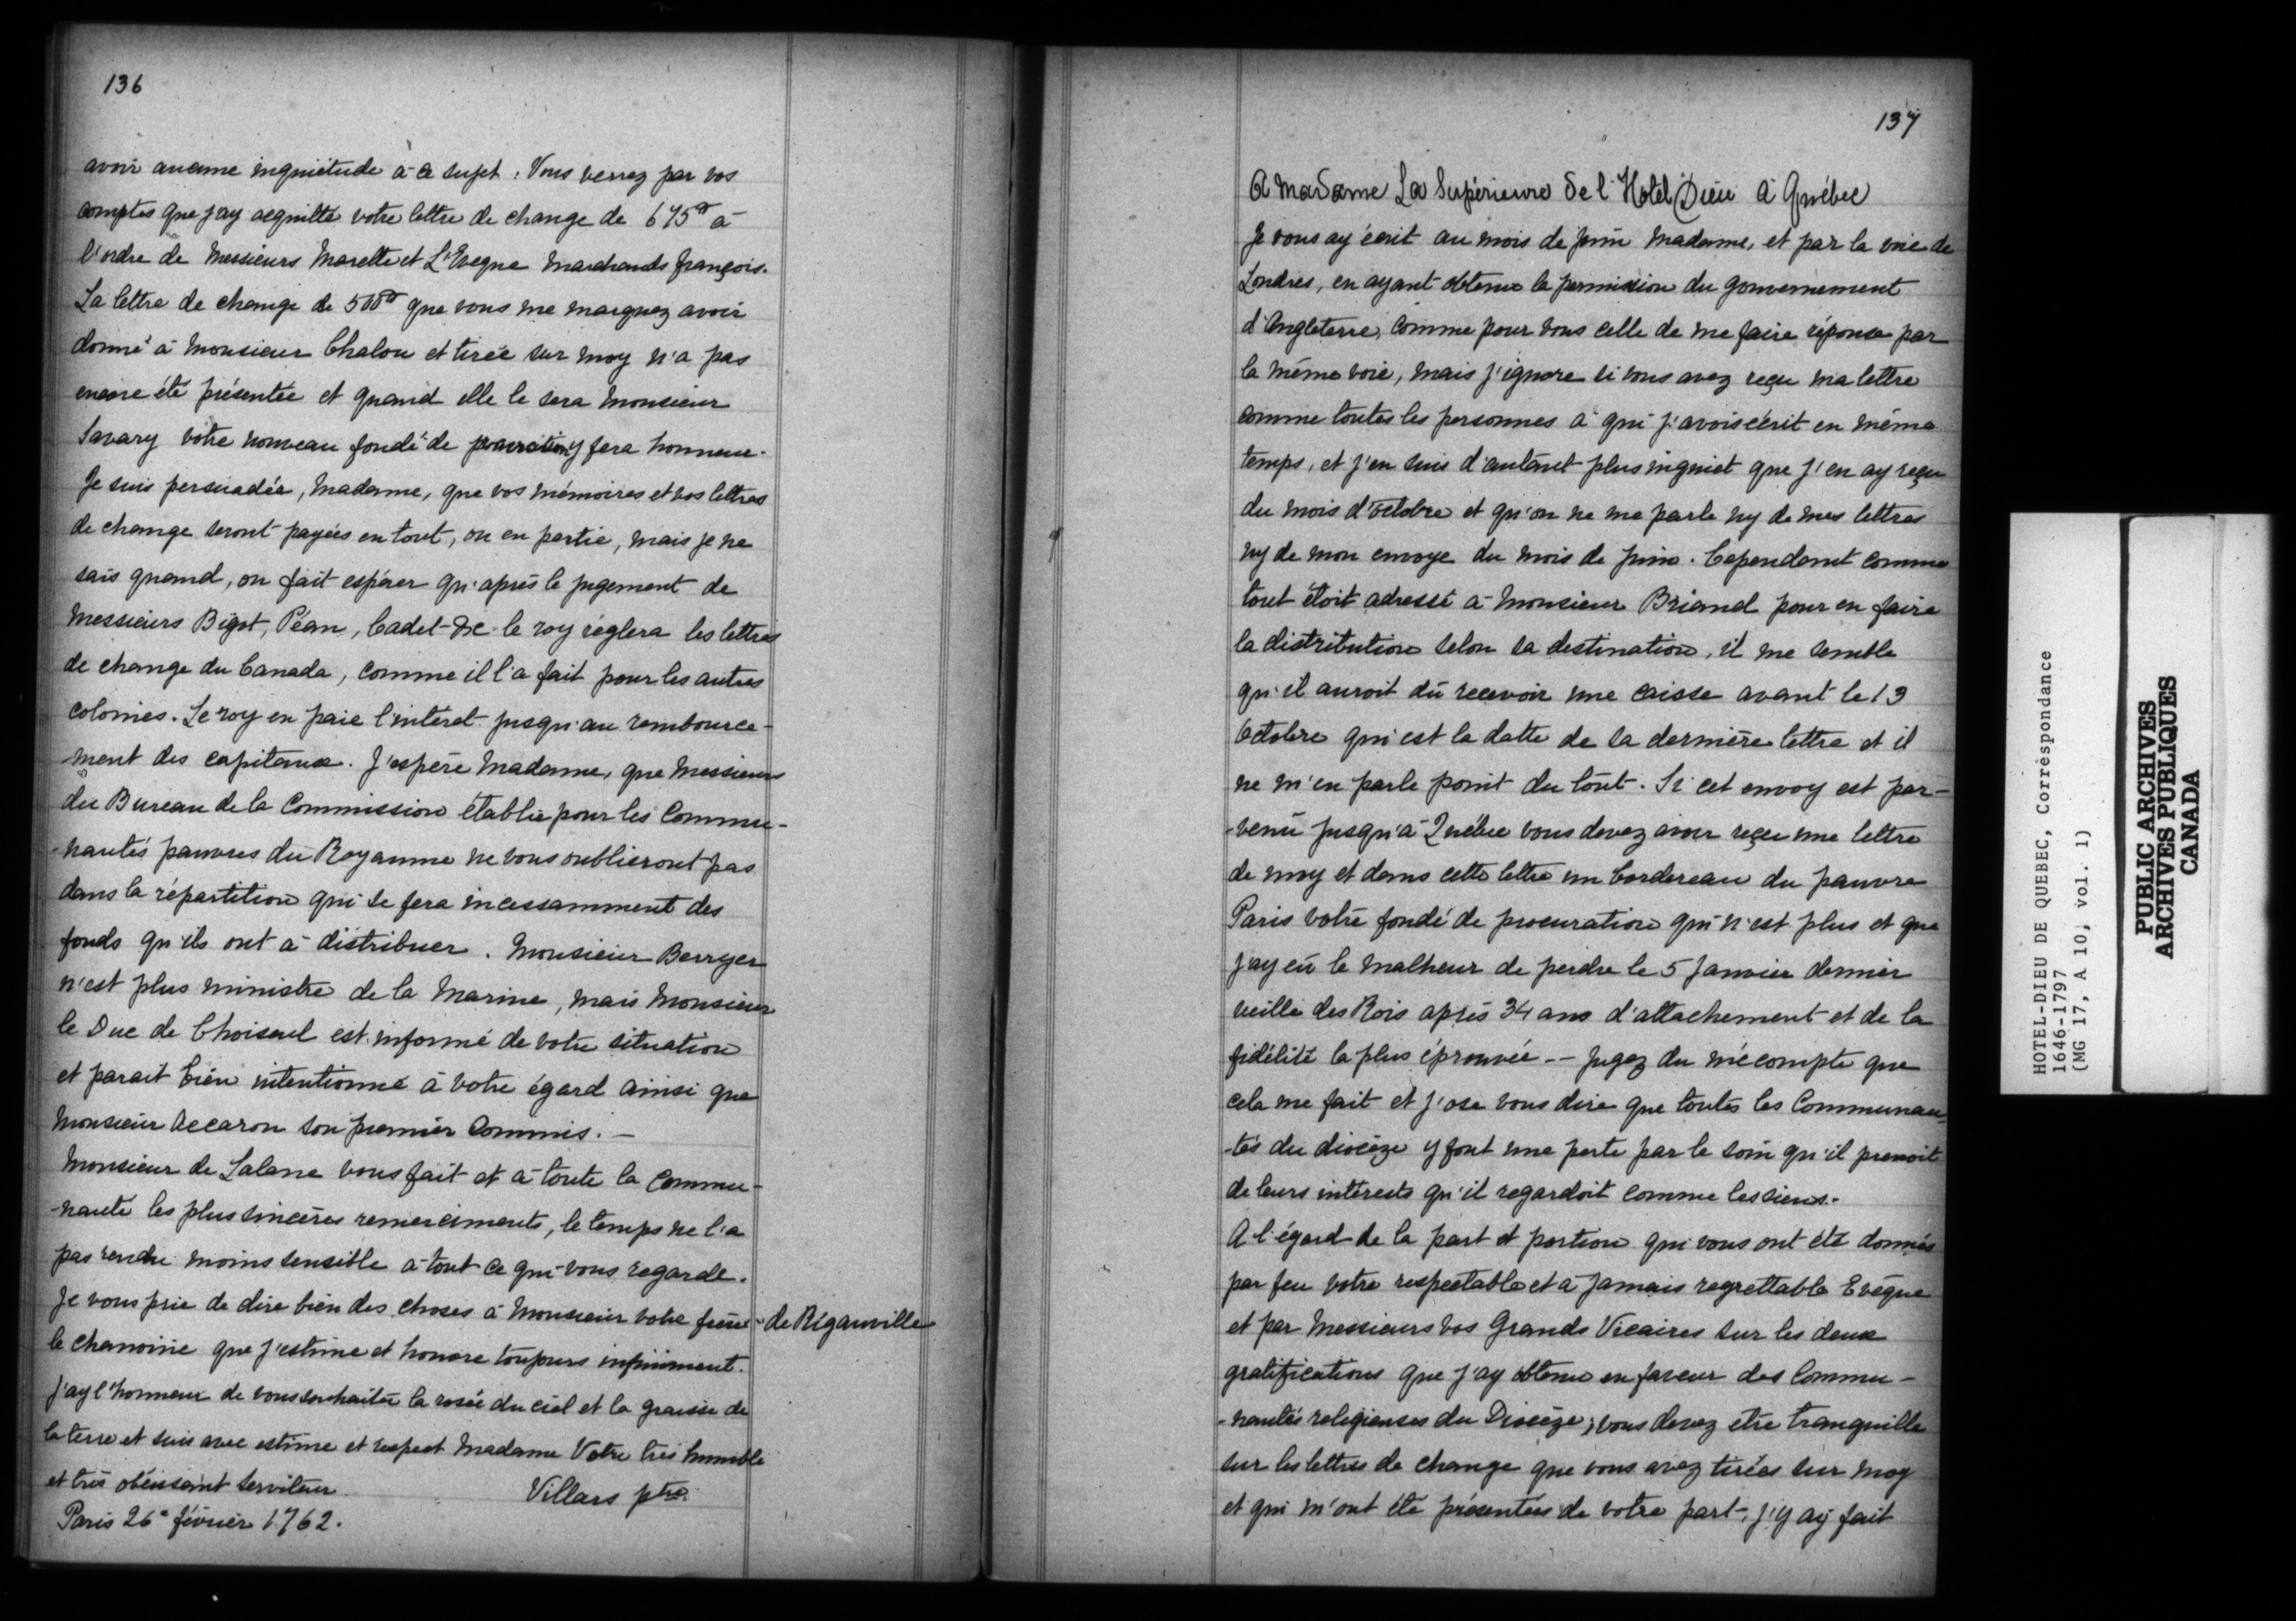 136
avoir aucune inquiétude à ce sujet. Vous verrez par vos
comptes que j'ay acquitté votre lettre de change de 675# à
l'ordre de Messieurs Marette et L'Eveque Marchands françois.
La lettre de change de 500# que vous me marquez avoir
donné à Monsieur Chalou et tirée sur moy n'a pas
encore été présentée et quand elle le sera Monsieur
Savary votre nouveau fondé de procuration y fera honneur.
Je suis persuadée, Madame, que vos mémoires et vos lettres
de change seront payées en tout, ou en partie, mais je ne
sais quand, on fait espérer qu'après le jugement de
Messieurs Bigot, Péan, Cadet &c le roy réglera les lettres
de change du Canada, comme il l'a fait pour les autres
colonies. Le roy en paie l'intéret jusqu'au rembource-
-ment des capitaux. J'espère Madame, que Messieurs
du Bureau de la Commission établie pour les Commu-
-nautés pauvres du Royaume ne vous oublieront pas
dans la répartition qui se fera incessamment des
fonds qu'ils ont à distribuer. Monsieur Berryer
n'est plus ministre de la Marine, mais Monsieur
le Duc de Choiseul est informé de votre situation
et parait bien intentionné à votre égard ainsi que
Monsieur Accaron son premier Commis. —
Monsieur de Lalane vous fait et à toute la Commu-
-nauté les plus sincères remerciments, le temps ne l'a
pas rendu moins sensible à tout ce qui vous regarde.
Je vous prie de dire bien des choses à Monsieur votre frère - de Rigauville
le chanoine que j'estime et honore toujours infiniment.
J'ay l'honneur de vous souhaiter la rosée du ciel et la graisse de
la terre et suis avec estime et respect Madame Votre très humble
et très obéissant serviteur. Villars ptre.
Paris 26e février 1762.
137
A Madame La Supérieure de l'Hotel Dieu à Québec
Je vous ay écrit au mois de juin Madame, et par la voie de
Londres, en ayant obtenu la permission du gouvernement
d'Angleterre, comme pour vous celle de me faire réponse par
la même voie, mais j'ignore si vous avez reçu ma lettre
comme toutes les personnes à qui j'avois écrit en même
temps, et j'en suis d'autant plus inquiet que j'en ay reçu
du mois d'octobre et qu'on ne me parle ny de mes lettres
ny de mon envoye du mois de juin. Cependant comme
tout étoit adressé à Monsieur Briand pour en faire
la distribution selon sa destination, il me semble
qu'il auroit dû recevoir une caisse avant le 13
Octobre qui est la datte de sa dernière lettre et il
ne m'en parle point du tout. Si cet envoy est par-
-venu jusqu'à Québec vous devez avoir reçu une lettre
de moy et dans cette lettre un bordereau du pauvre
Paris votre fondé de procuration qui n'est plus et que
j'ay eu le malheur de perdre le 5 Janvier dernier
veille des Rois après 34 ans d'attachement et de la
fidélité la plus éprouvée -- jugez du mécompte que
cela me fait et j'ose vous dire que toutes les Communau-
-tés du diocèze y font une perte par le soin qu'il prenoit
de leurs intérests qu'il regardoit comme les siens.
A l'égard de la part et portion qui vous ont été donnés
par feu votre respectable et à jamais regrettable Evêque
et par Messieurs vos Grands Vicaires sur les deux
gratifications que j'ay obtenu en faveur des Commu-
-nautés religieuses du Diocèze, vous devez etre tranquille
sur les lettres de change que vous avez tirées sur moy
et qui m'ont été présentées de votre part, j'y ay fait
HOTEL-DIEU DE QUEBEC, Correspondance
1646-1797
(MG 17, A 10, vol. 1)
PUBLIC ARCHIVES
ARCHIVES PUBLIQUES
CANADA